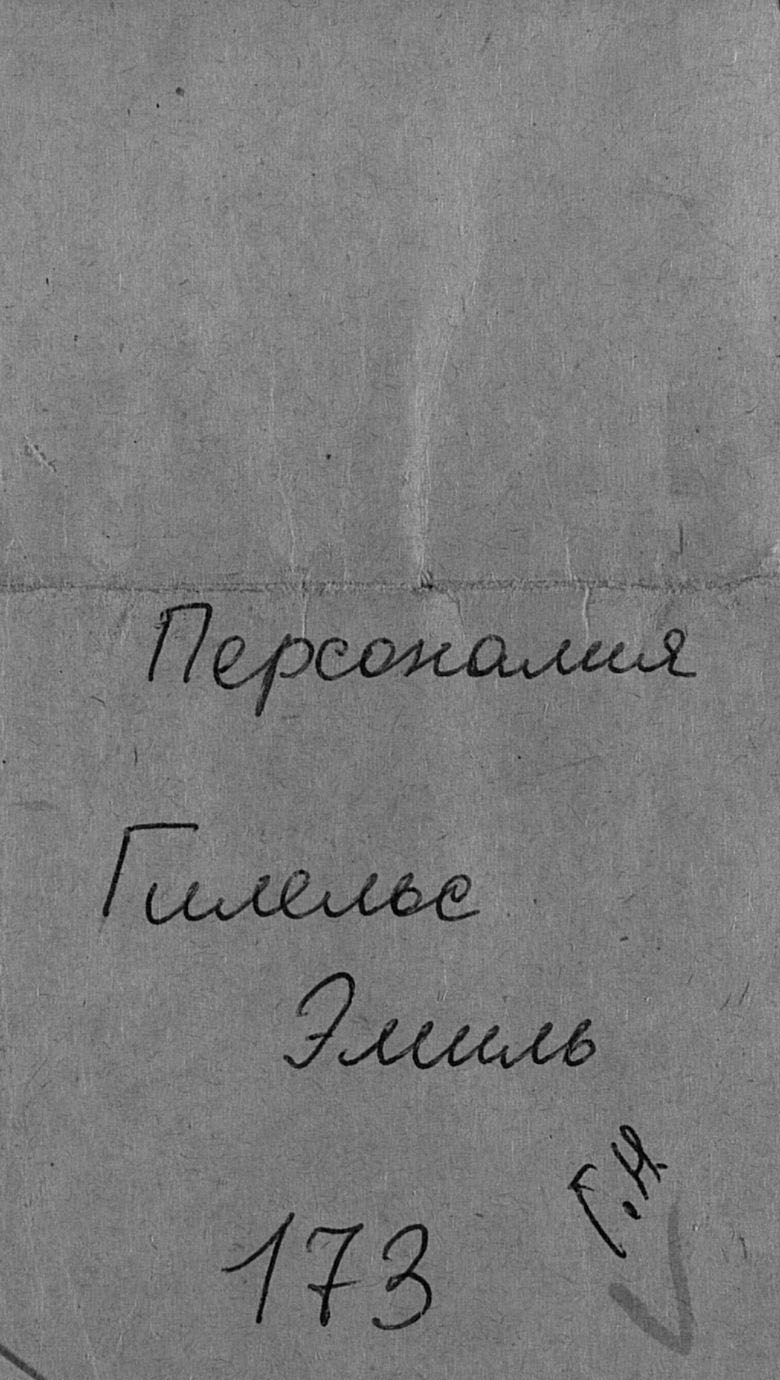 Персоналия
Гилельс
Эмиль
Г.Н
173